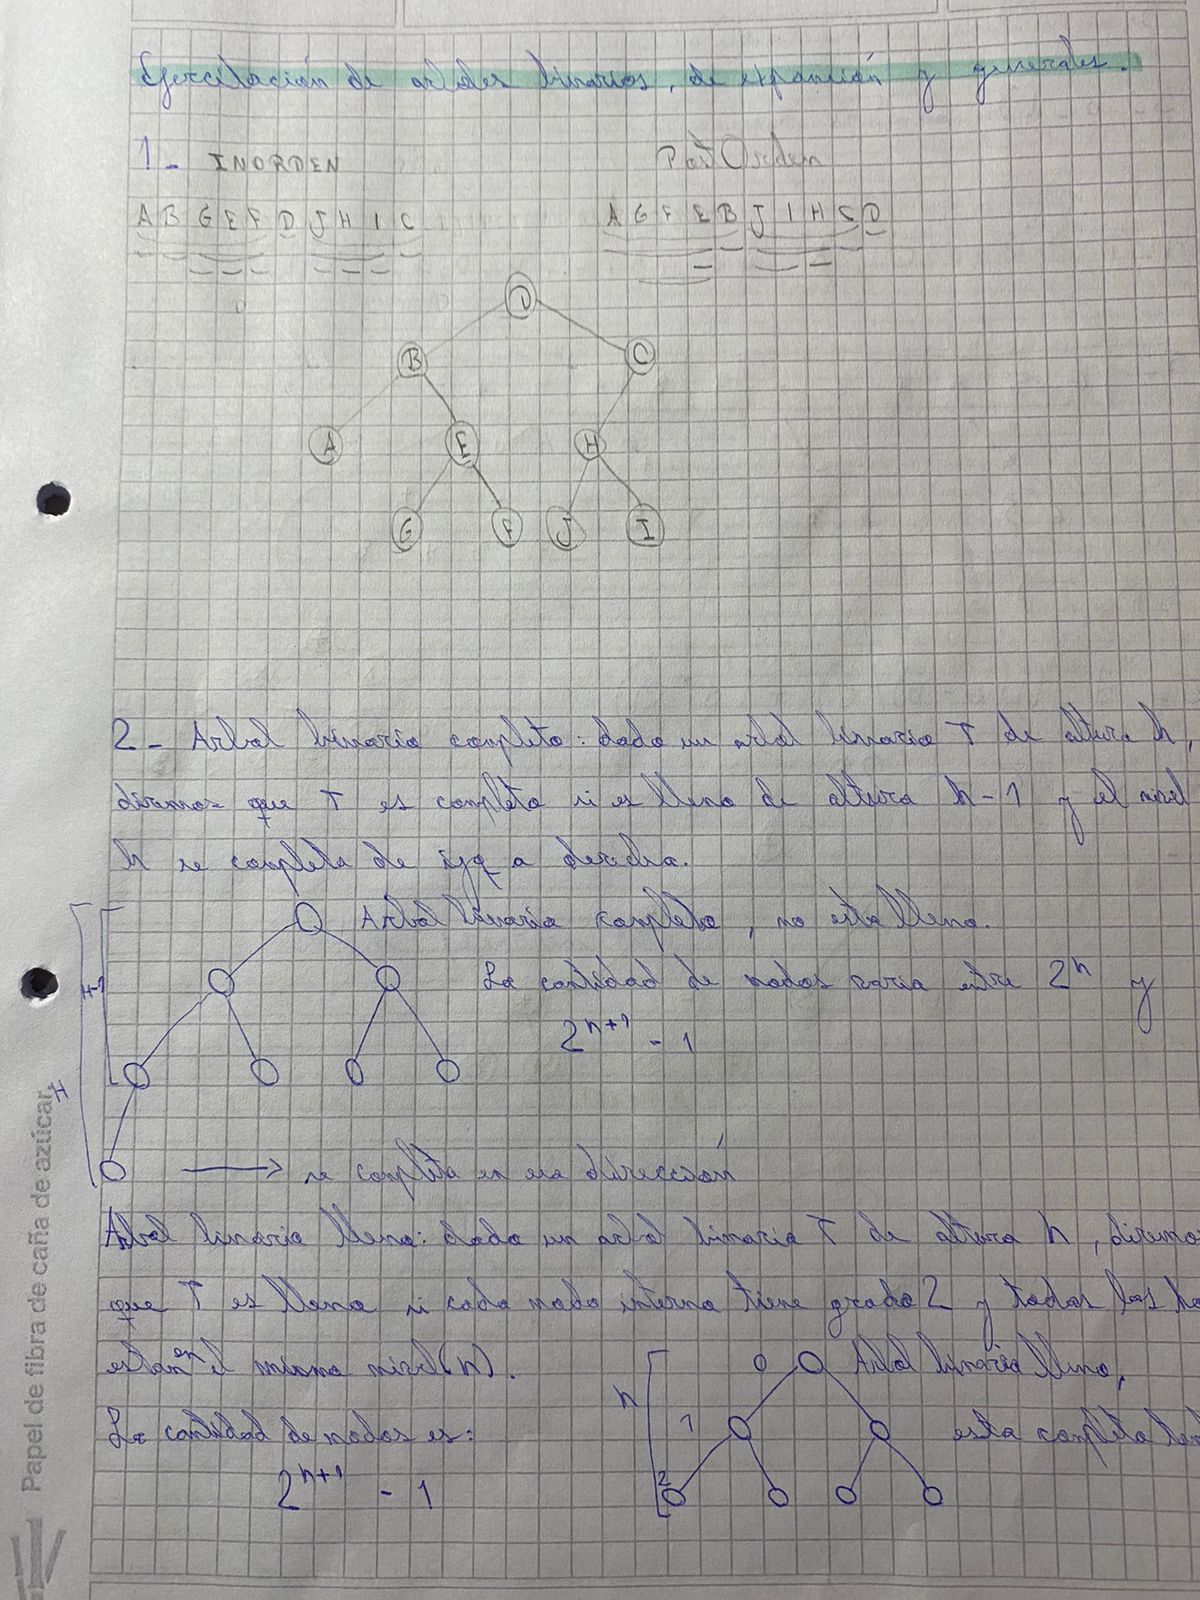 Ejercitación de arboles binarios, de expansión y generales.
1- INORDEN PostOrden
A B G E F D J H I C A G F E B J I H C D
D
B C
A E H
G F J I
2- Arbol binario completo: dado un arbol binario T de altura h,
diremos que T es completo si es lleno de altura h-1 y el nivel
h se completa de izq a derecha.
Arbol binario completo, no esta lleno.
H-1 La cantidad de nodos varia entre 2^h y
2^h+1 - 1
H
→ se completa en esa dirección
Arbol binario lleno: dado un arbol binario T de altura h, diremos
que T es lleno si cada nodo interno tiene grado 2 y todas las ho
estan en el mismo nivel (h).
0 Arbol binario lleno,
h
La cantidad de nodos es: 1 esta completa
2^h+1 - 1 2
Papel de fibra de caña de azúcar.